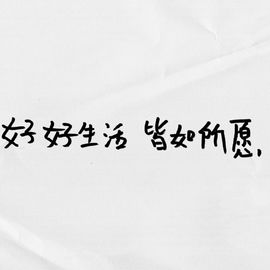 好好生活 皆如所愿.